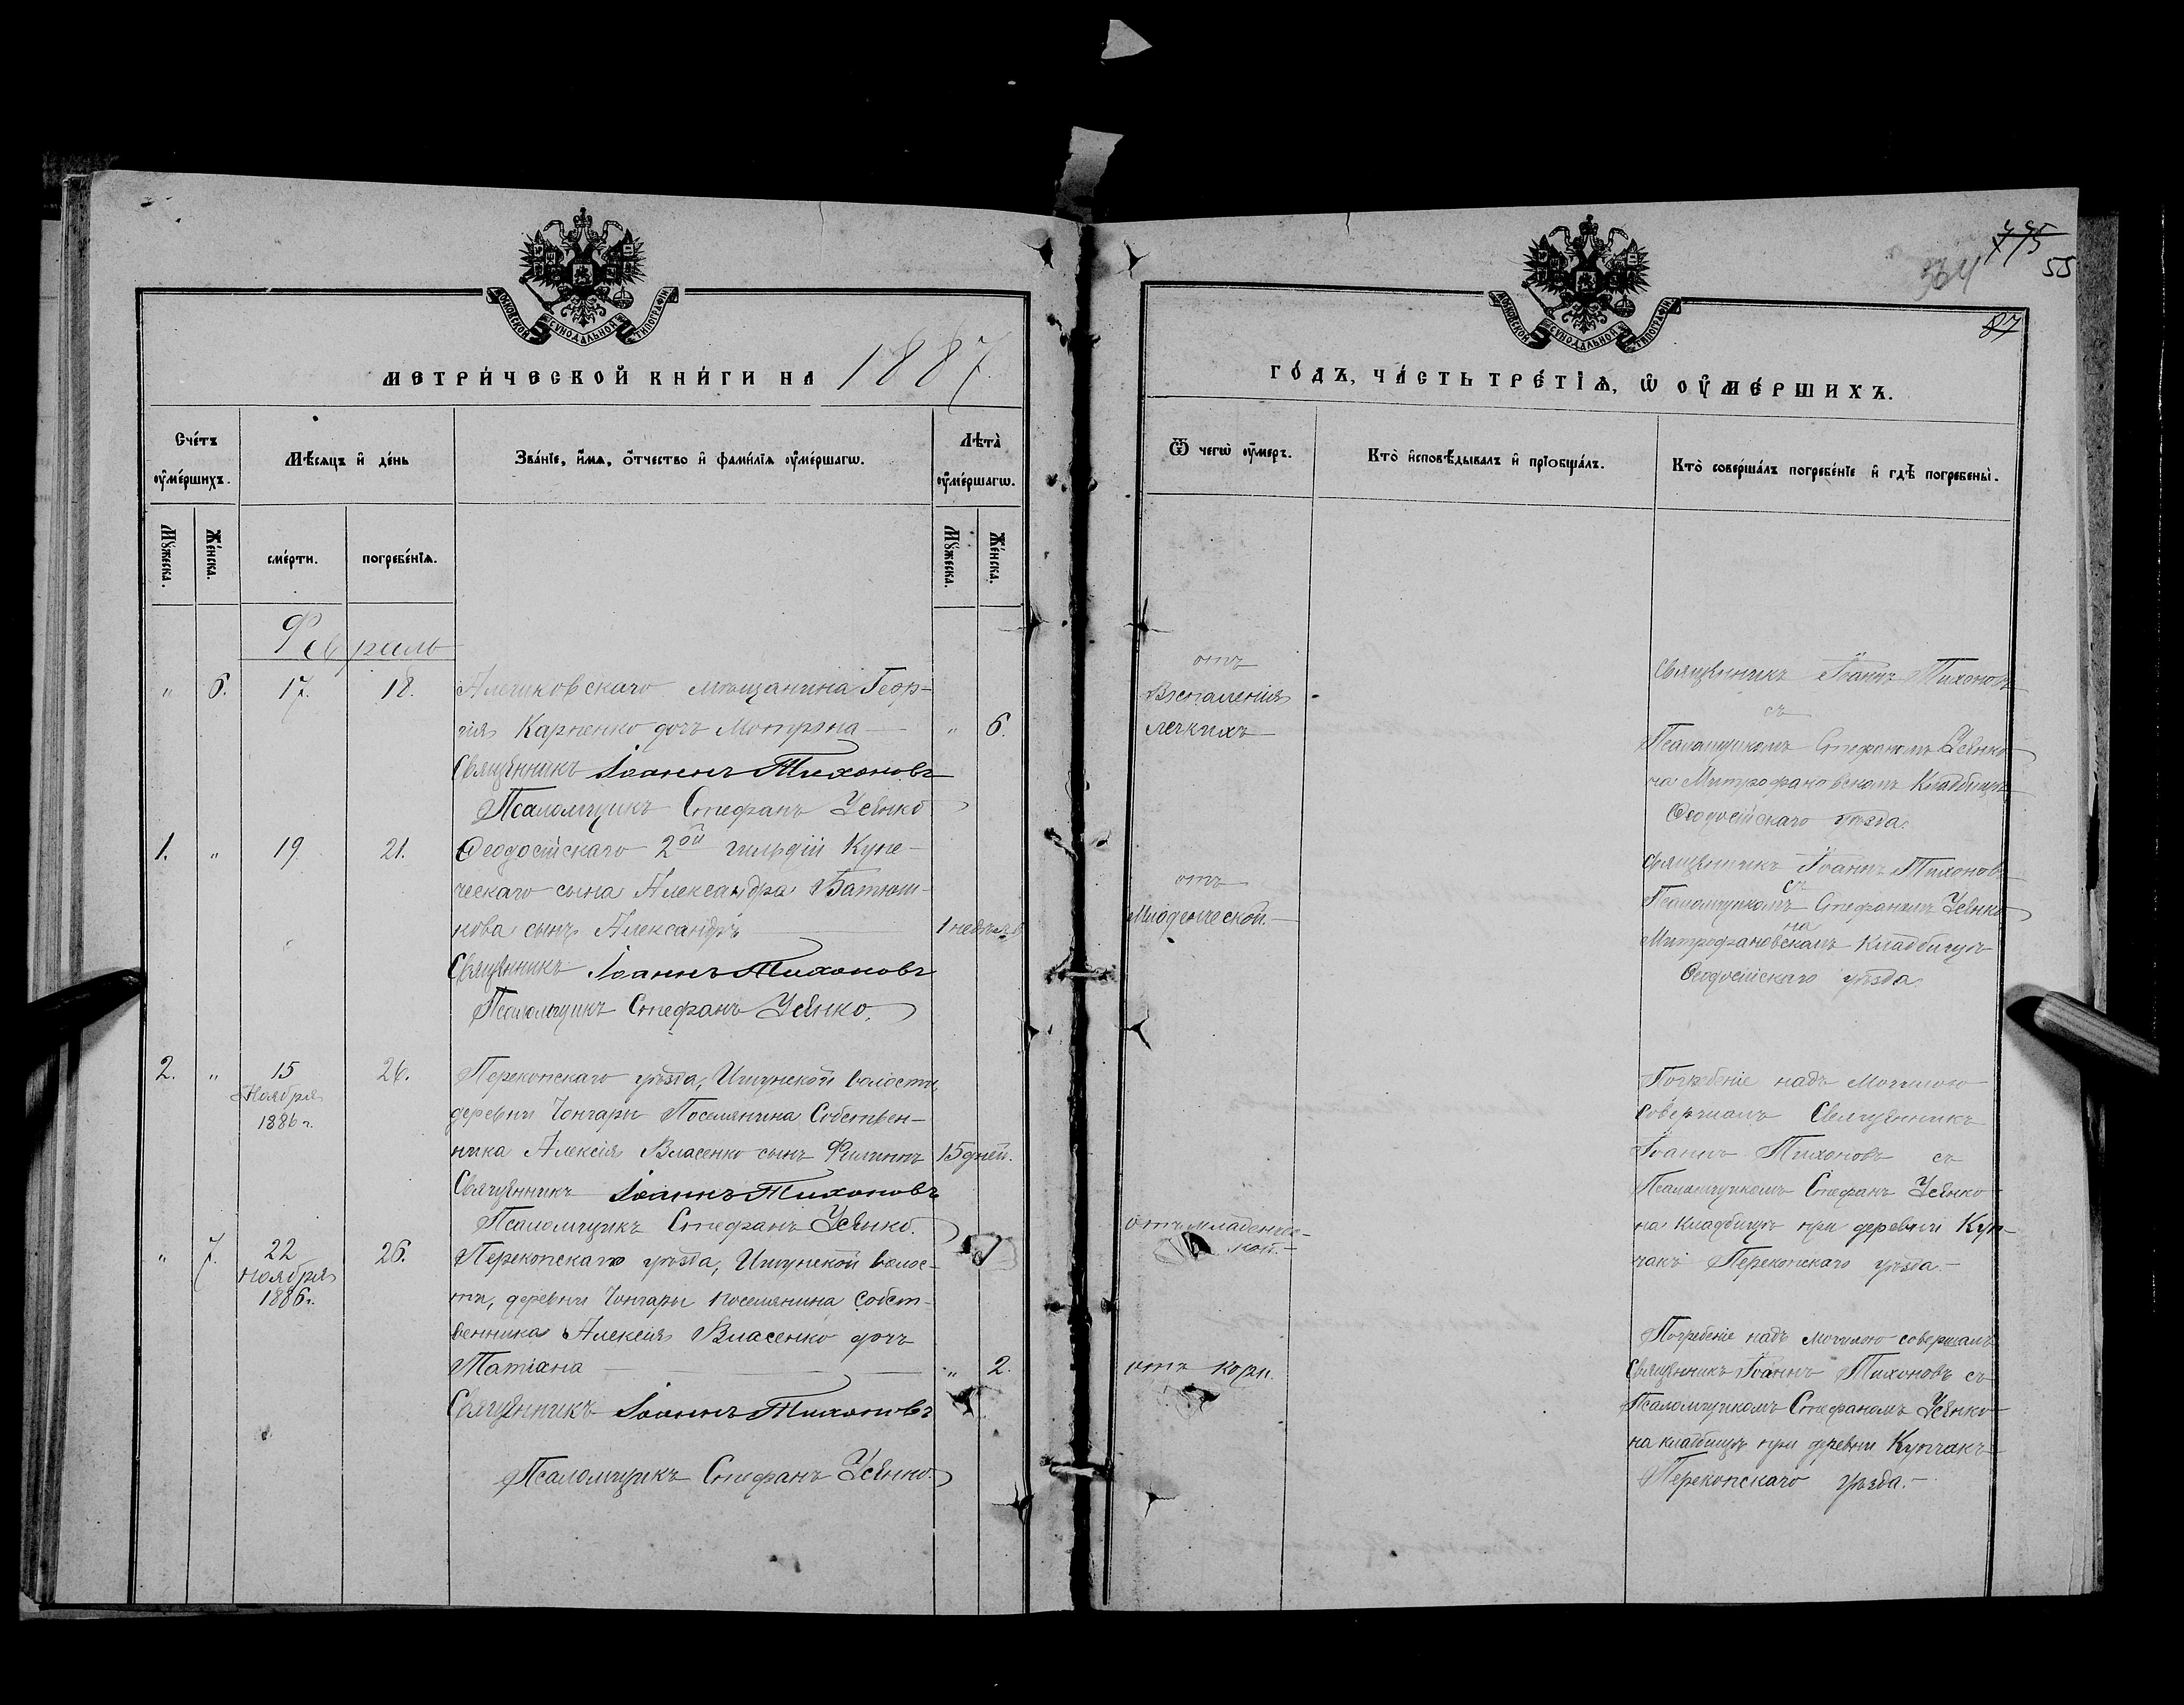 775
364
55
87
МОСКОВСКОЙ СѴНОДАЛЬНОЙ ТИПОГРАФІИ
МЕТРИ́ЧЕСКОЙ КНИ́ГИ НА 1887
Сче́тъ ᲂу҆ме́ршихъ.
Мѣ́сяцъ и҆ де́нь
Зва́нїе, и҆́мѧ, ѻ҆́тчество и҆ фами́лїѧ ᲂу҆ме́ршагѡ.
Лѣта̀ ᲂу҆ме́ршагѡ.
Мꙋ́жеска.
Же́нска.
сме́рти.
погребе́нїѧ.
Мꙋ́жеска.
Же́нска.
Февраль
" 6. 17. 18. Алешковскаго мѣщанина Геор-
гія Карпенко дочь Мотрона — " 6.
Священникъ Іоаннъ Тихоновъ
Псаломщикъ Стефанъ Усенко
1. " 19 21. Ѳеодосійскаго 2ой гильдіи Купе-
ческаго сына Александра Батюш-
нова сынъ Александръ — 1 недѣля
Священникъ Іоаннъ Тихоновъ
Псаломщикъ Стефанъ Усенко.
2. " 15 26. Перекопскаго уѣзда, Ишунской волости,
Ноября деревни Чонгары Поселянина Собствен-
1886 г.
ника Алексія Власенко сынъ Филиппъ 15 дней.
Священникъ Іоаннъ Тихоновъ
Псаломщикъ Стефанъ Усенко.
" 7. 22 26. Перекопскаго уѣзда, Ишунской волос-
ноября
1886 г. ти, деревни Чонгары поселянина собст-
венника Алексія Власенко дочь
Татіана — " 2.
Священникъ Іоаннъ Тихоновъ
Псаломщикъ Стефанъ Усенко.
МОСКОВСКОЙ СѴНОДАЛЬНОЙ ТИПОГРАФІИ
ГО́ДЪ, ЧА́СТЬ ТРЕ́ТІѦ, Ѡ҆ ОУ҆МЕ́РШИХЪ.
Ѿ чегѡ̀ ᲂу҆́меръ.
Кто̀ и҆сповѣ́дывалъ и҆ прїобща́лъ.
Кто̀ соверша́лъ погребе́нїе и҆ гдѣ̀ погребены̀.
отъ
Воспаленія
легкихъ
Священникъ Іоаннъ Тихоновъ
съ
Псаломщикомъ Стефаномъ Усенко
на Митрофановскомъ Кладбищѣ
Ѳеодосійскаго уѣзда.
отъ
Младенческой.
Священникъ Іоаннъ Тихоновъ
съ
Псаломщикомъ Стефаномъ Усенко
на
Митрофановскомъ Кладбищѣ
Ѳеодосійскаго уѣзда
отъ младенчес-
кой.
Погребеніе надъ Могилою
совершалъ Священникъ
Іоаннъ Тихоновъ съ
Псаломщикомъ Стефанъ Усенко
на Кладбищѣ при деревни Куп-
чакѣ Перекопскаго уѣзда.
отъ кори.
Погребеніе надъ могилою совершалъ
Священникъ Іоаннъ Тихоновъ съ
Псаломщикомъ Стефаномъ Усенко
на кладбищѣ при деревни Купчакъ
Перекопскаго уѣзда.